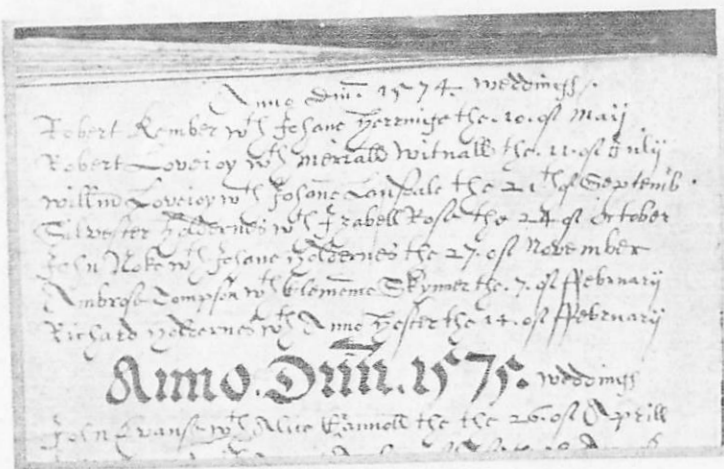 Anno Dm̄. 1574. weddings.
Robert Kember wth Johane Herninge the .10. of Maij
Robert Loveioy wth Merrall Witnall the .11. of Julij
Willm̄ Loveioy wth Johane the 21th of Septemb.
Silvester Holdernes wth Izabell Rose the 24 of October
John Noke wth Johane Holdernes the 27. of November
Ambrose Tompson wth Clemence Skynner the .7. of ffebruarij
Richard Holdernes wth Anne Hester the 14. of ffebruarij
Anno. Dm̄. 1575. weddings
John Evans wth Alice the the 26. of Aprill